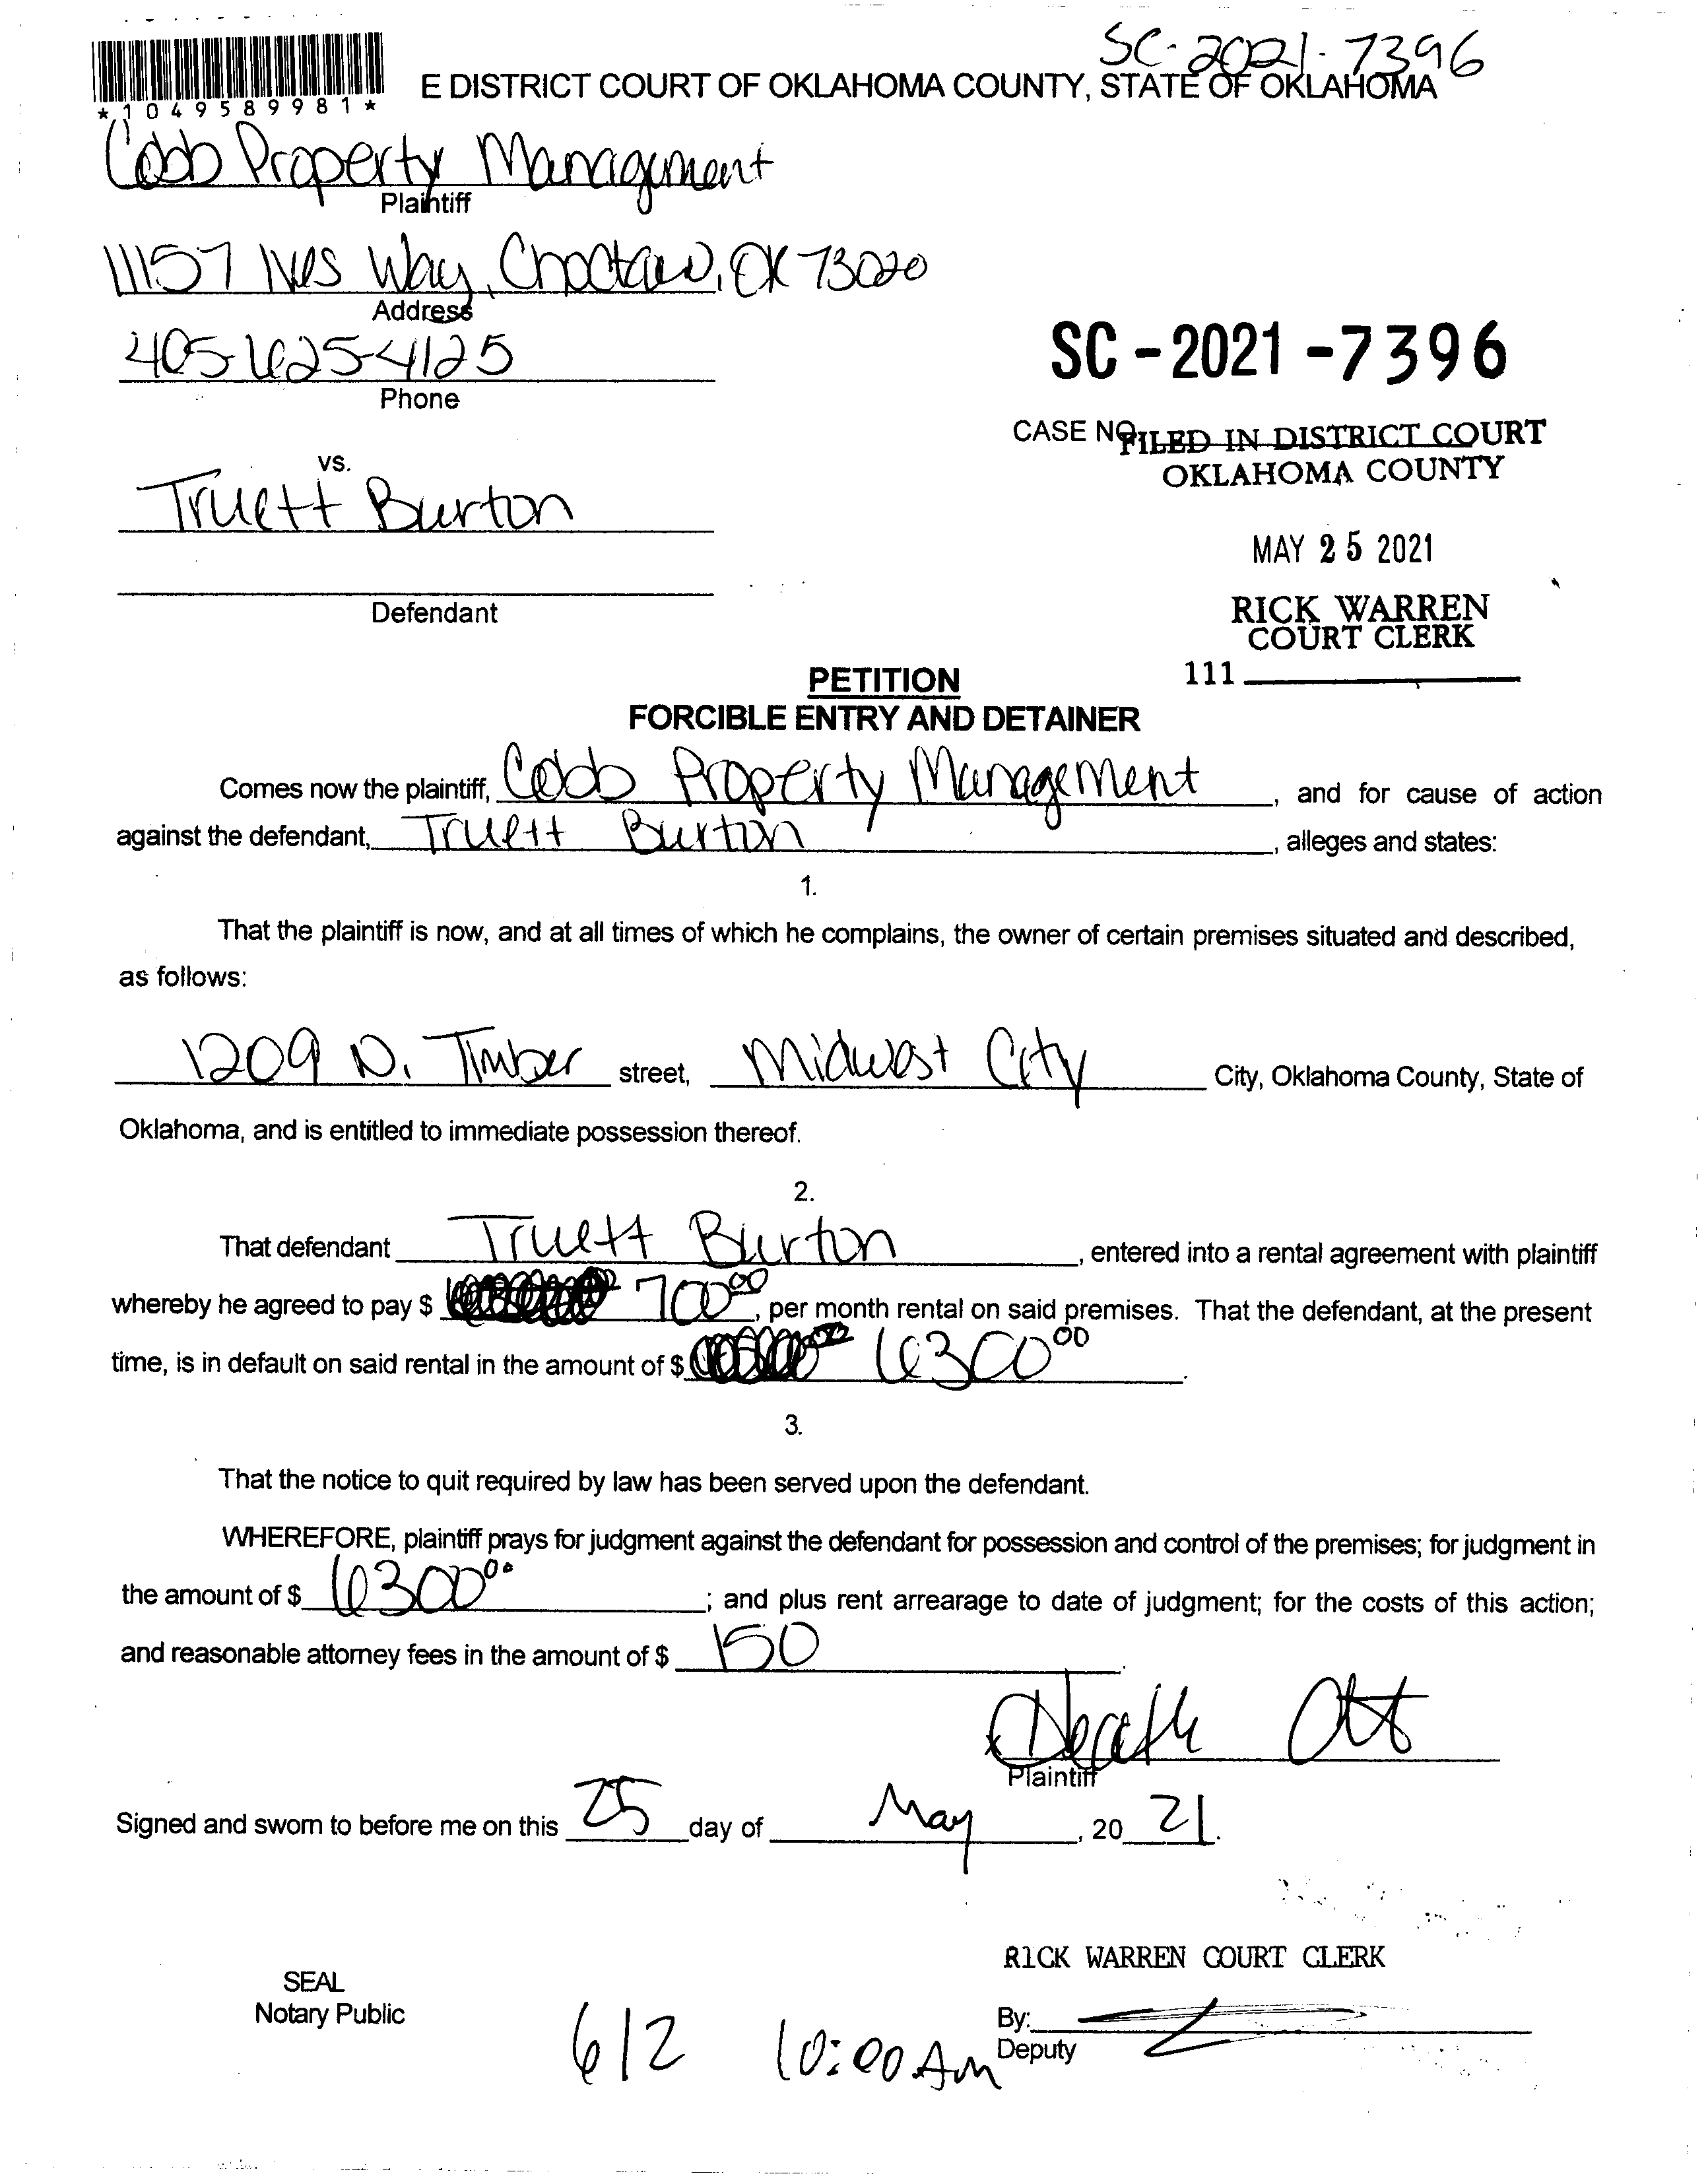 SC-2021-7396
E DISTRICT COURT OF OKLAHOMA COUNTY, STATE OF OKLAHOMA
*1049589981*
Cobb Property Management
Plaintiff
11157 Ives Way, Choctaw, OK 73020
Address
405-625-4125
Phone
SC-2021-7396
CASE NO.
FILED IN DISTRICT COURT
OKLAHOMA COUNTY
vs.
Truett Burton
MAY 25 2021
Defendant
RICK WARREN
COURT CLERK
111
PETITION
FORCIBLE ENTRY AND DETAINER
Comes now the plaintiff, Cobb Property Management, and for cause of action
against the defendant, Truett Burton, alleges and states:
1.
That the plaintiff is now, and at all times of which he complains, the owner of certain premises situated and described,
as follows:
1209 N. Timber street, Midwest City City, Oklahoma County, State of
Oklahoma, and is entitled to immediate possession thereof.
2.
That defendant Truett Burton, entered into a rental agreement with plaintiff
whereby he agreed to pay $ 700.00, per month rental on said premises. That the defendant, at the present
time, is in default on said rental in the amount of $ 6300.00.
3.
That the notice to quit required by law has been served upon the defendant.
WHEREFORE, plaintiff prays for judgment against the defendant for possession and control of the premises; for judgment in
the amount of $ 6300.00; and plus rent arrearage to date of judgment; for the costs of this action;
and reasonable attorney fees in the amount of $ 150.
Plaintiff
Signed and sworn to before me on this 25 day of May, 20 21.
RICK WARREN COURT CLERK
SEAL
Notary Public
By:
Deputy
6/2 10:00 Am